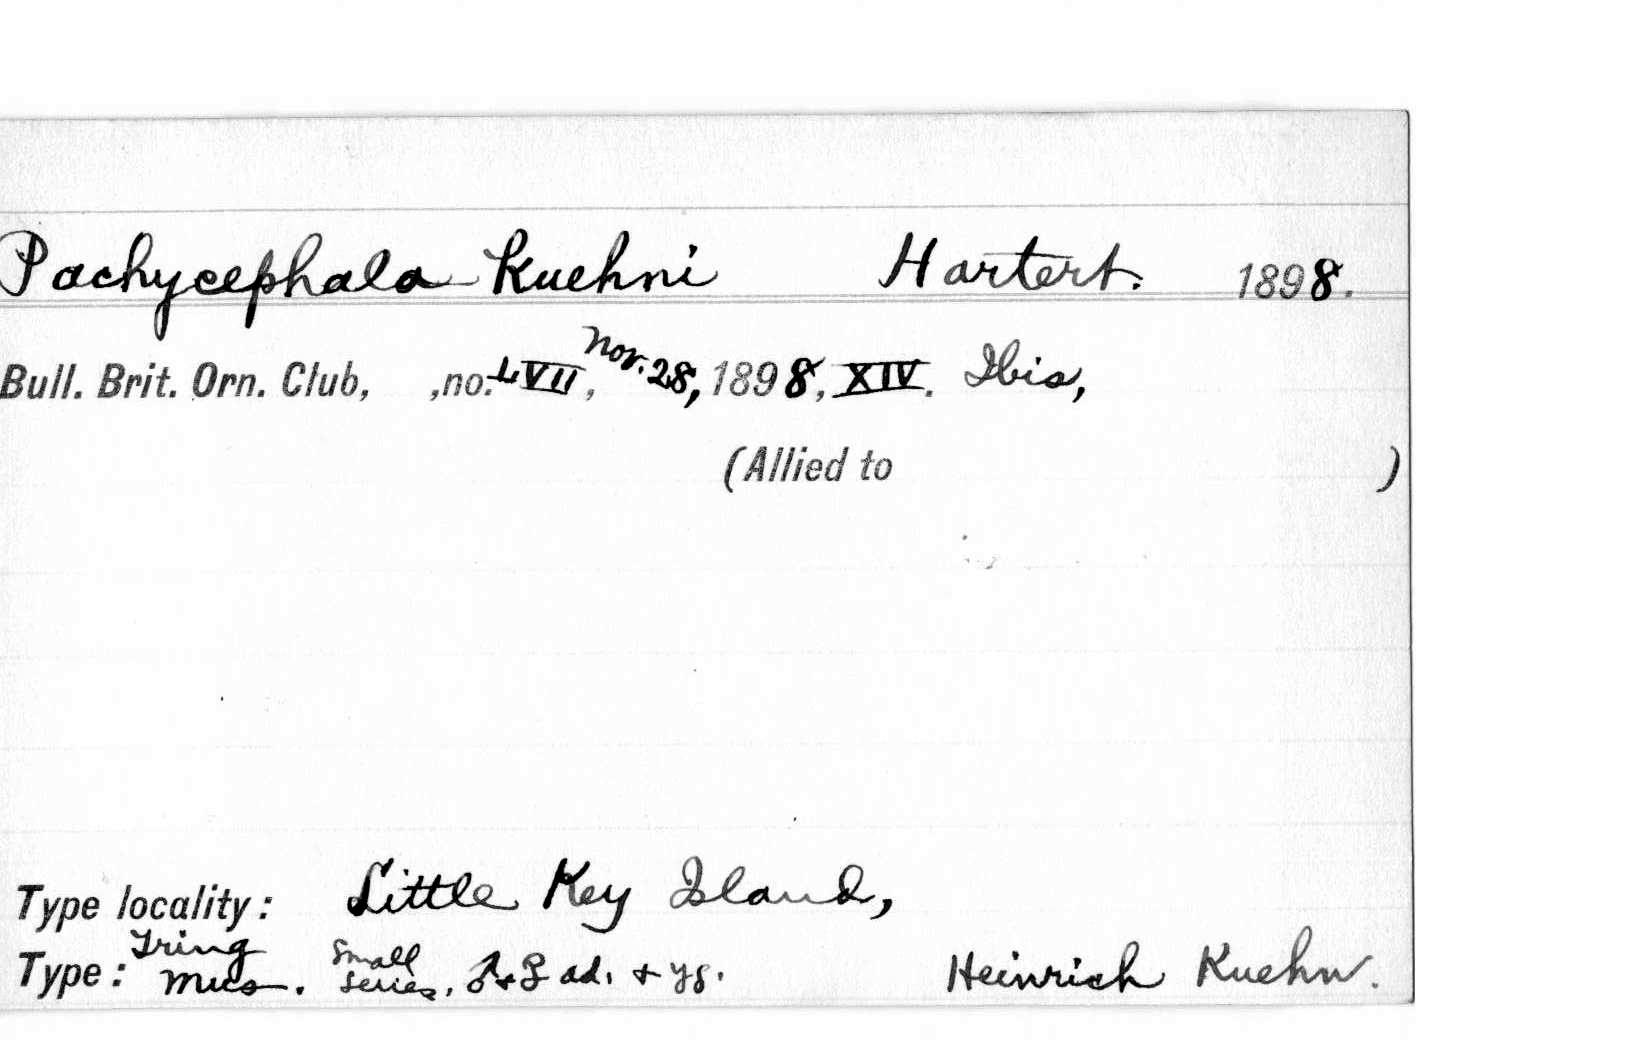 Pachycephala Kuehni Hartert. 1898.
Bull. Brit. Orn. Club, ,no. LVII, Nov. 28, 1898, XIV. Ibis,
(Allied to )
Type locality: Little Key Island,
Type: Tring Mus. Small series. ♂ + ♀ ad. + yg. Heinrich Kuehn.